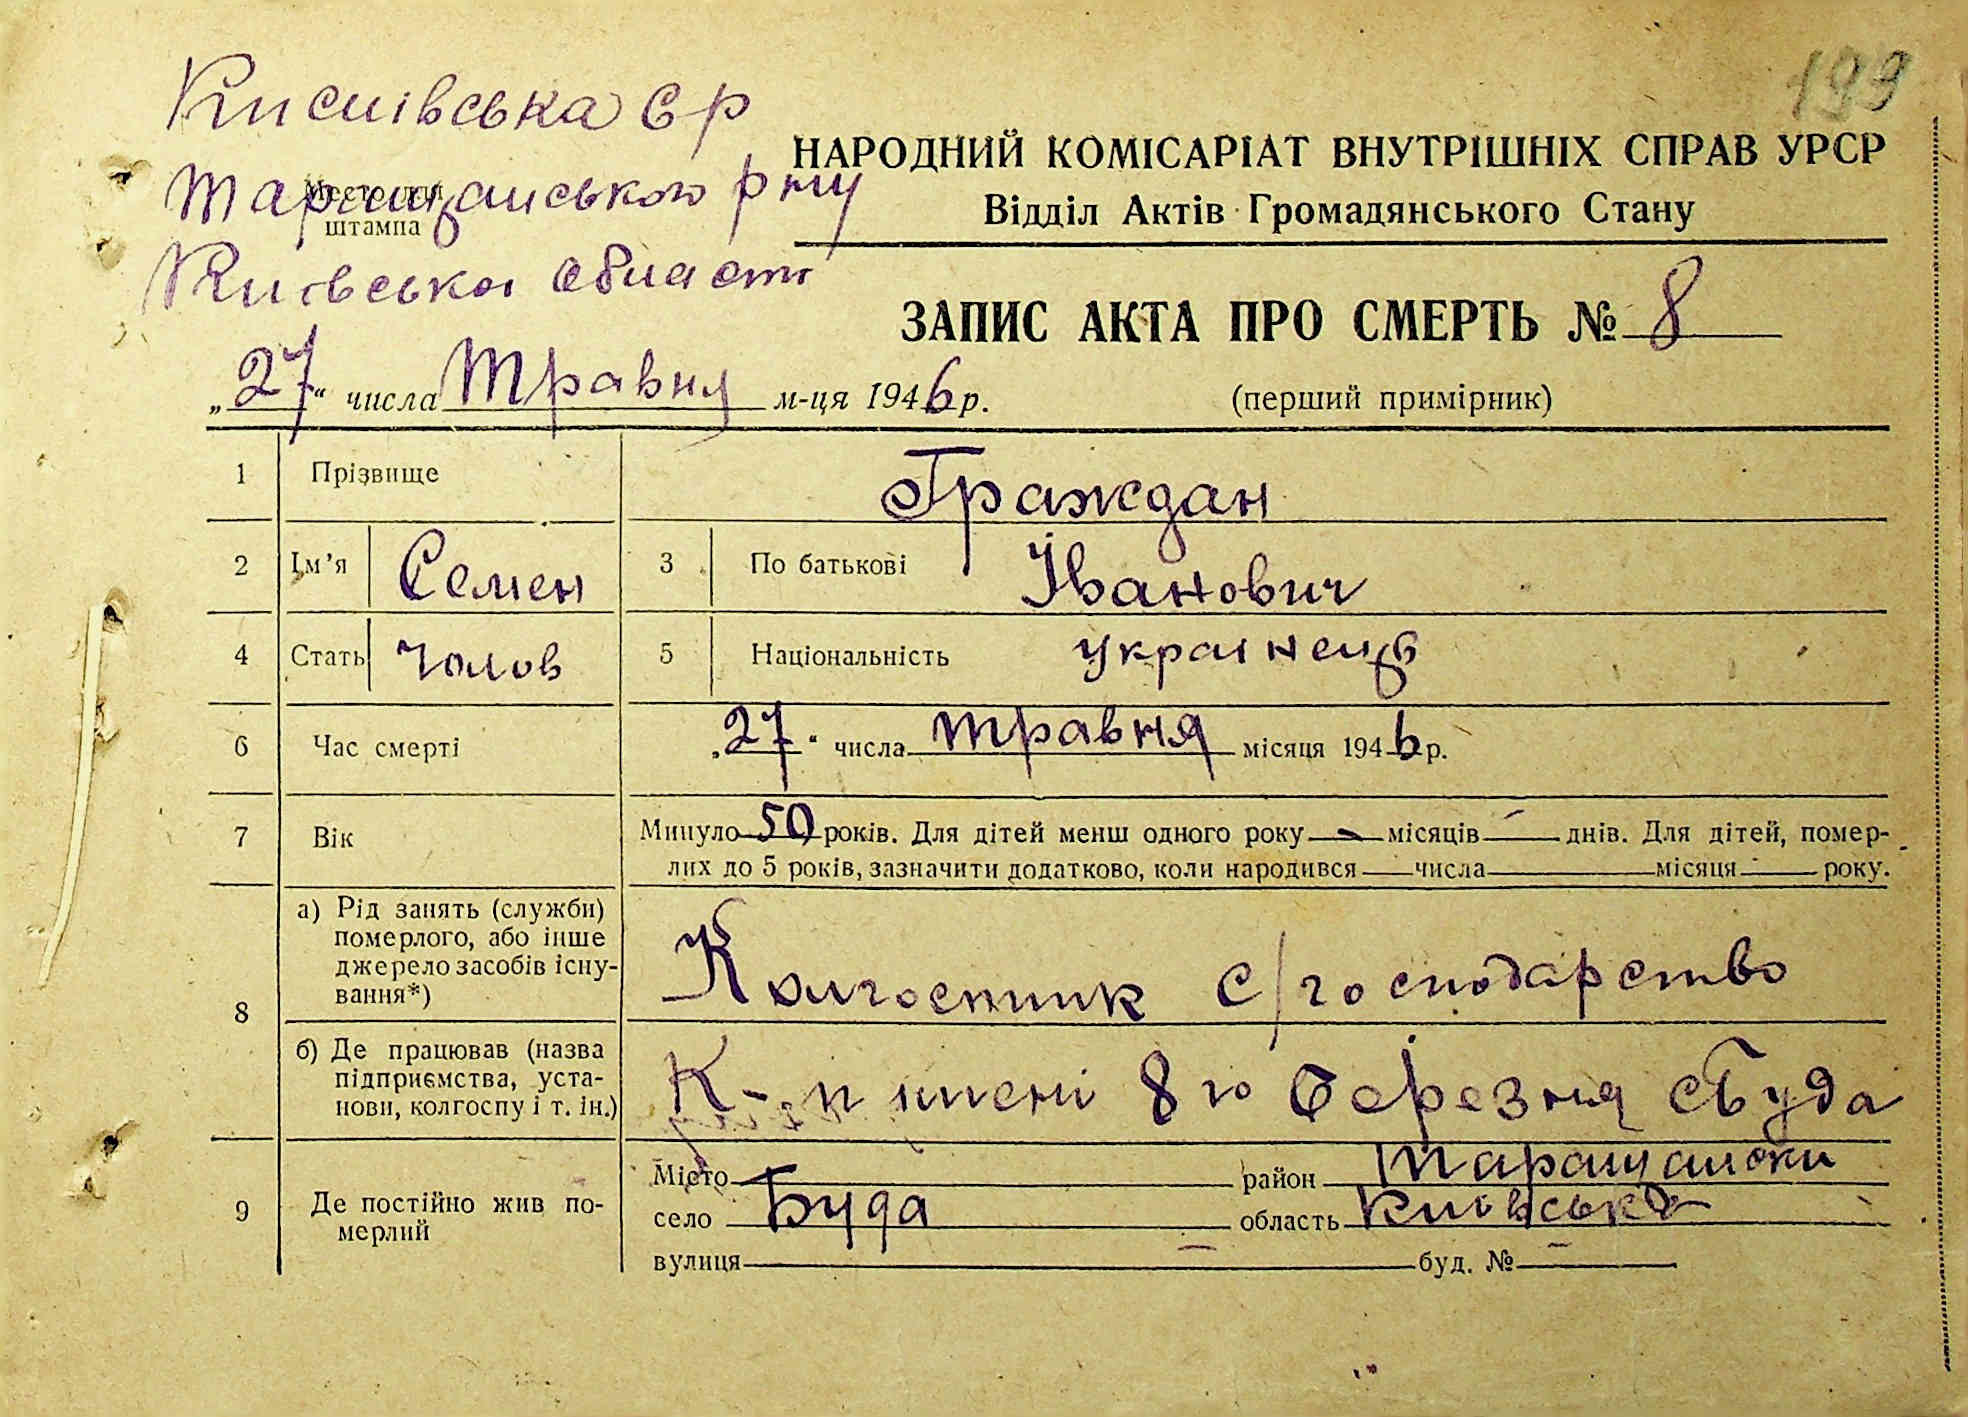 199
Кислівська с р
Таращанського рну
Київської області
Место для
штампа
НАРОДНИЙ КОМІСАРІАТ ВНУТРІШНІХ СПРАВ УРСР
Відділ Актів Громадянського Стану
ЗАПИС АКТА ПРО СМЕРТЬ № 8
„27“ числа Травня м-ця 1946 р.
(перший примірник)
1 Прізвище Граждан
2 Ім’я Семен 3 По батькові Іванович
4 Стать Чолов 5 Національність українець
6 Час смерті „27“ числа травня місяця 1946 р.
7 Вік Минуло 50 років. Для дітей менш одного року — місяців — днів. Для дітей, помер-
лих до 5 років, зазначити додатково, коли народився числа місяця року.
8 а) Рід занять (служби)
померлого, або інше
джерело засобів існу-
вання*)
Колгоспник с/господарство
б) Де працював (назва
підприємства, уста-
нови, колгоспу і т. ін.)
К-п імені 8го Березня с Буда
9 Де постійно жив по-
мерлий
Місто район Таращански
село Буда область Київська
вулиця — буд. № —